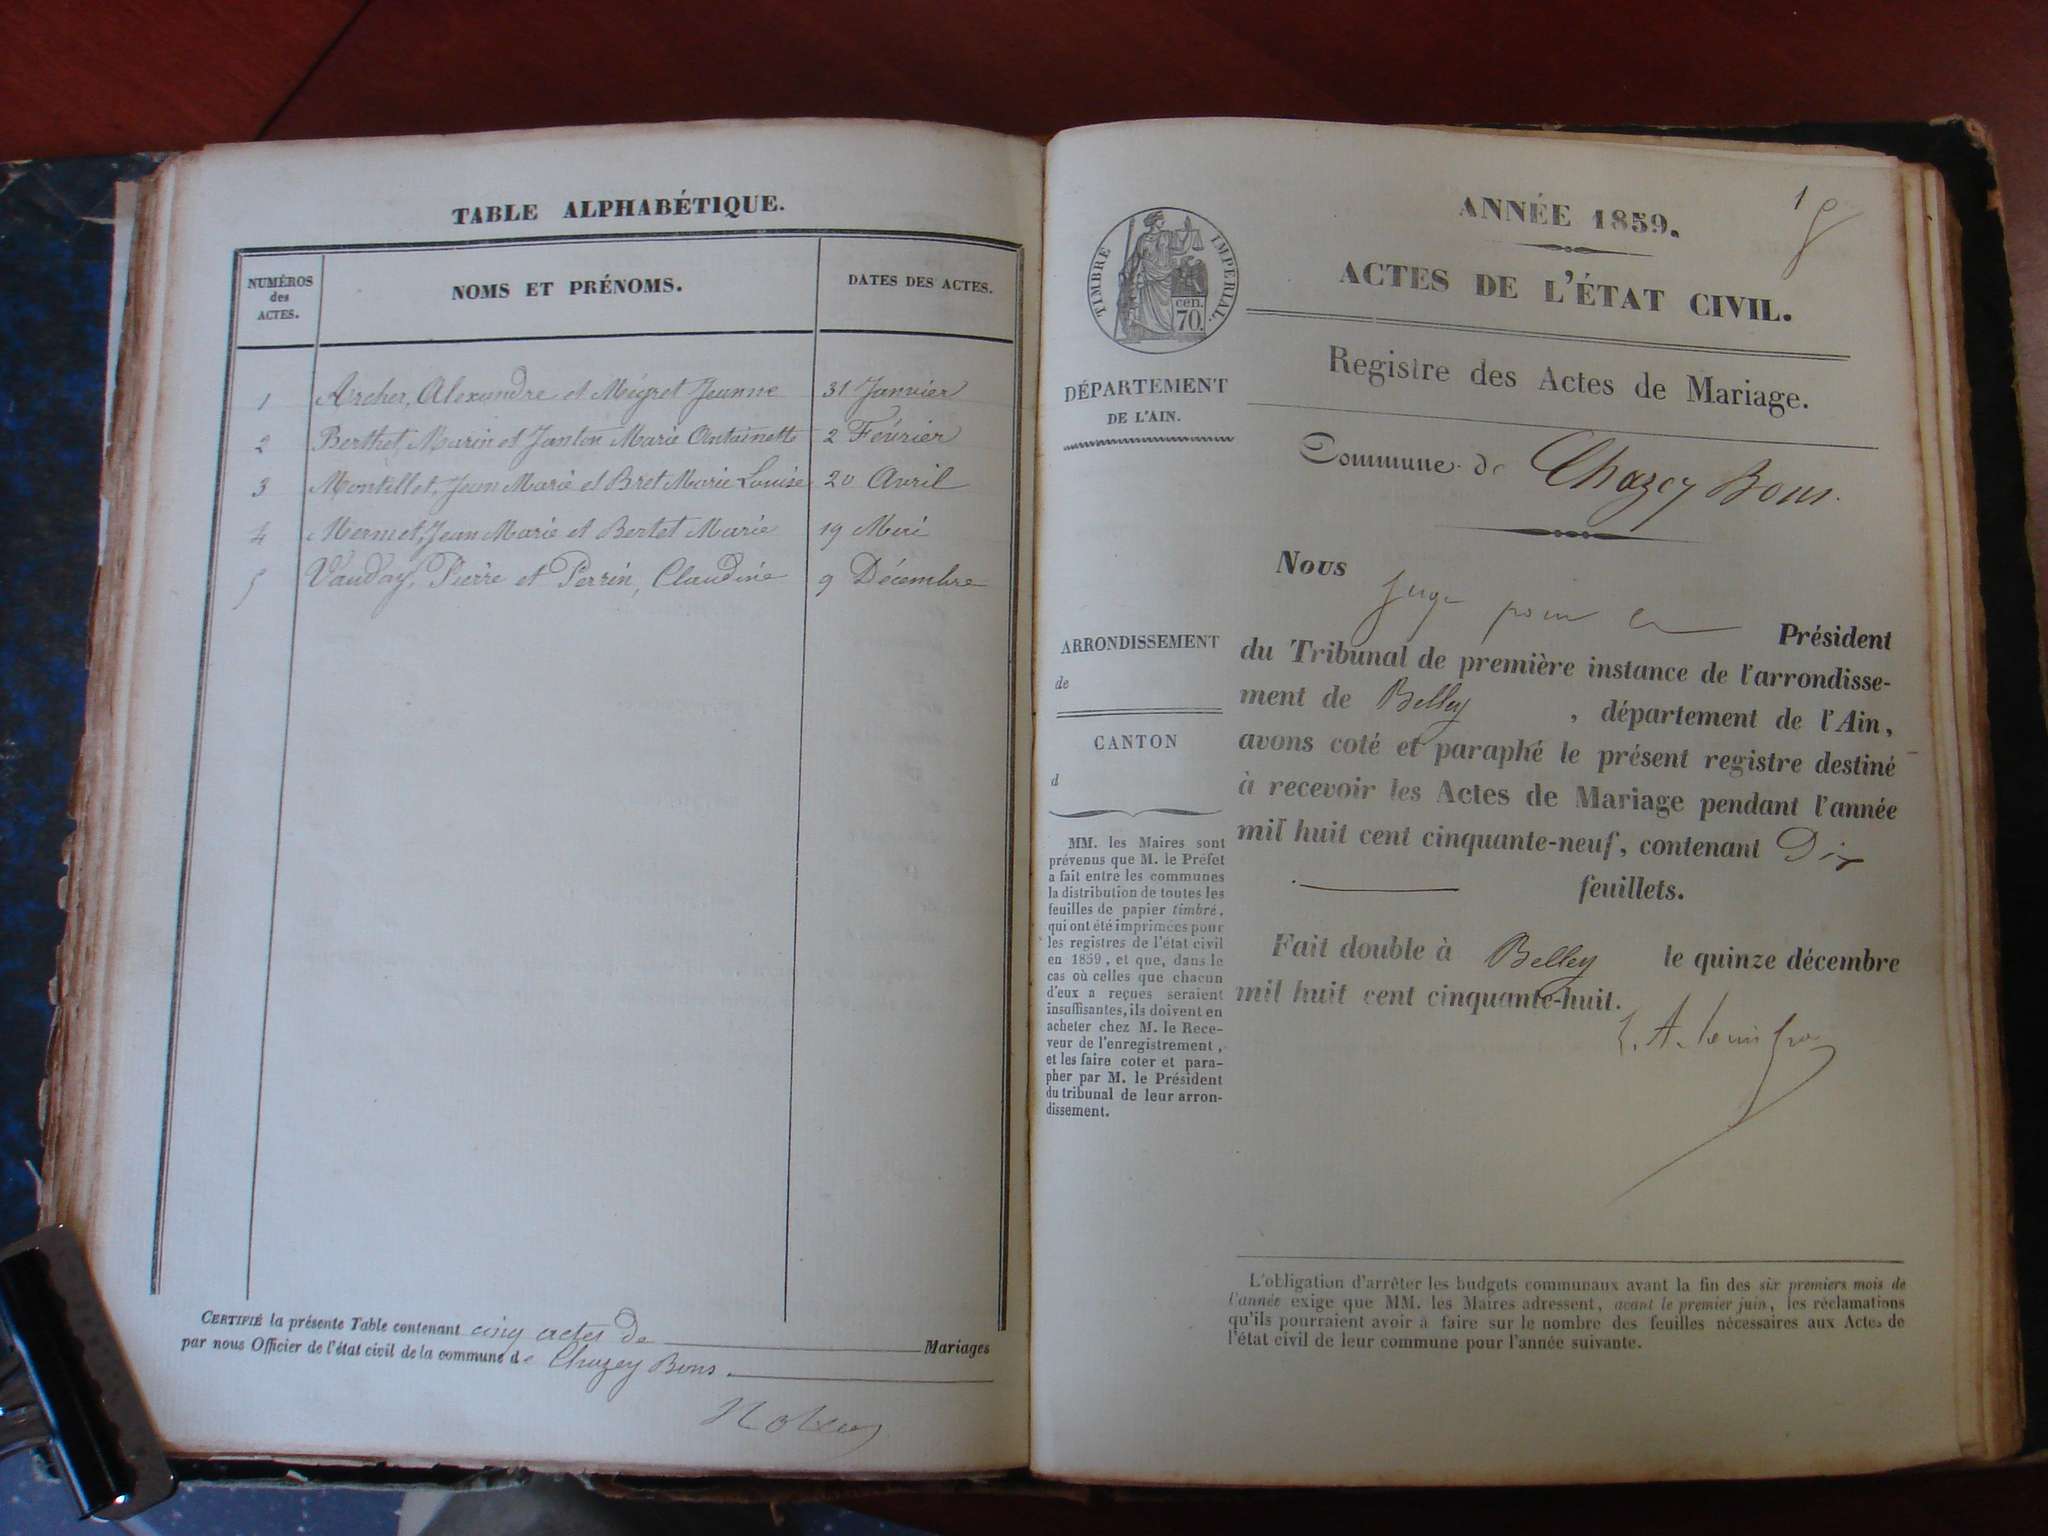 TABLE ALPHABÉTIQUE.
NUMÉROS des ACTES.
NOMS ET PRÉNOMS.
DATES DES ACTES.
1 Archer, Alexandre et Mégret Jeanne 31 Janvier
2 Berthet, Marin et Janton Marie Antoinette 2 Février
3 Montillet, Jean Marie et Bret Marie Louise 20 Avril
4 Mermet, Jean Marie et Bertet Marie 19 Mai
5 Vauday, Pierre et Perrin, Claudine 9 Décembre
CERTIFIÉ la présente Table contenant cinq actes de Mariages
par nous Officier de l'état civil de la commune de Chazey Bons.
1
ANNÉE 1859.
TIMBRE IMPERIAL.
cen.
70.
ACTES DE L'ÉTAT CIVIL.
Registre des Actes de Mariage.
DÉPARTEMENT
DE L'AIN.
Commune de Chazey Bons.
Nous
juge pour le Président
du Tribunal de première instance de l'arrondisse-
ment de Belley, département de l'Ain,
avons coté et paraphé le présent registre destiné
à recevoir les Actes de Mariage pendant l'année
mil huit cent cinquante-neuf, contenant Dix
feuillets.
Fait double à Belley le quinze décembre
mil huit cent cinquante-huit.
ARRONDISSEMENT
de
CANTON
d
MM. les Maires sont
prévenus que M. le Préfet
a fait entre les communes
la distribution de toutes les
feuilles de papier timbré,
qui ont été imprimées pour
les registres de l'état civil
en 1859, et que, dans le
cas où celles que chacun
d'eux a reçues seraient
insuffisantes, ils doivent en
acheter chez M. le Rece-
veur de l'enregistrement,
et les faire coter et para-
pher par M. le Président
du tribunal de leur arron-
dissement.
L'obligation d'arrêter les budgets communaux avant la fin des six premiers mois de
l'année exige que MM. les Maires adressent, avant le premier juin, les réclamations
qu'ils pourraient avoir à faire sur le nombre des feuilles nécessaires aux Actes de
l'état civil de leur commune pour l'année suivante.